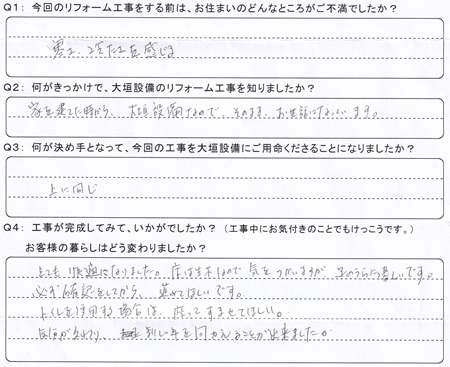 Q1: 今回のリフォーム工事をする前は、お住まいのどんなところがご不満でしたか?
寒エ、冷たエを感じる
Q2: 何がきっかけで、大垣設備のリフォーム工事を知りましたか?
家を建てた時から、大垣設備なので、そのまま、お世話になっています。
Q3: 何が決め手となって、今回の工事を大垣設備にご用命くださることになりましたか?
上に同じ
Q4: 工事が完成してみて、いかがでしたか? (工事中にお気付きのことでもけっこうです。)
お客様の暮らしはどう変わりましたか?
とても快適になりました。床は生木なので気をつかいますが、
必ず確認をしてから、進めてほしい です。
トイレを使用する場合は、座ってすませてほしい。
新しい年を向かえることが出来ました。